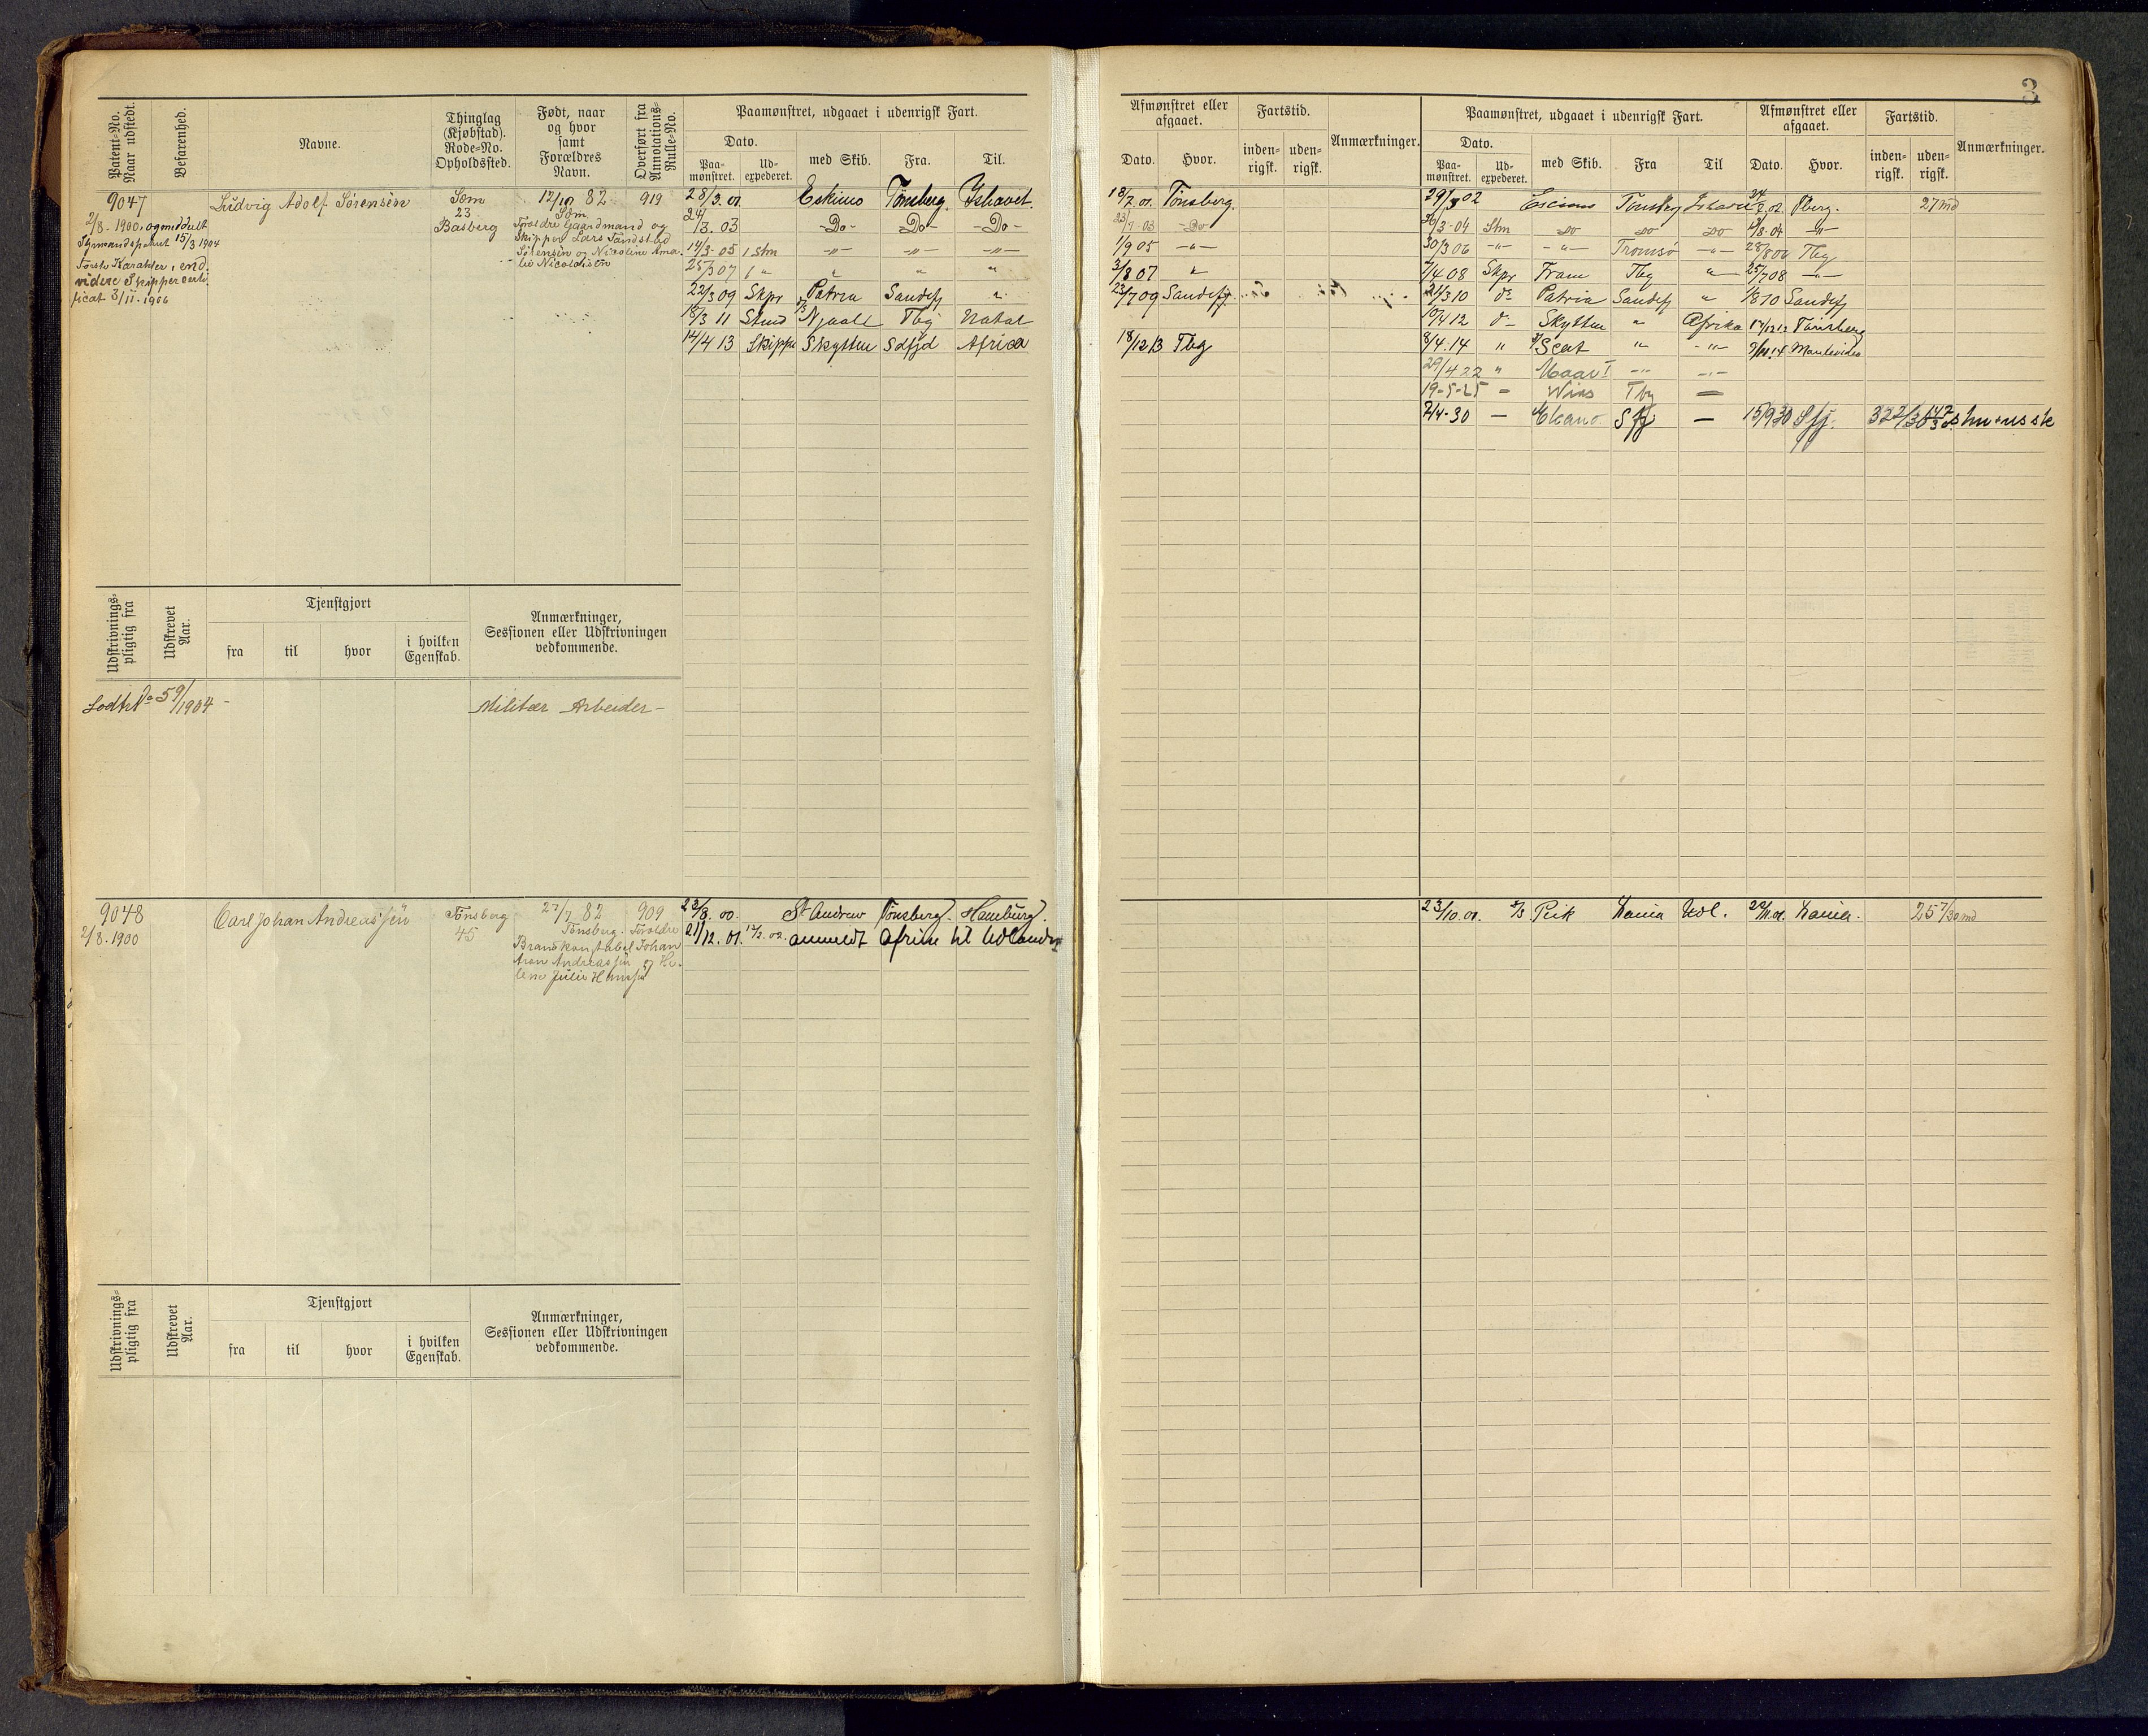 3
Patent-No. Naar udstedt.
Befarenhed.
Navne.
Thinglag (Kjøbstad). Rode-No. Opholdssted.
Født, naar og hvor samt Forældres Navn.
Overført fra Annotations-Rulle-No.
Paamønstret, udgaaet i udenrigsk Fart.
Dato.
Paa-mønstret. Ud-expederet. med Skib. Fra. Til.
9047
2/8-1900, og meddelt
Styrmandspatent 15/3 1904
første Karakter, end
videre Skippercerti
ficat 3/11-1906
Ludvig Adolf Sörensen
Sem
23
Basberg
12/10 82
Sem
Foroldre Gaardmand og
Skipper Lars Tandstad
Sörensen og Nicoline Ama
lie Nicolaisen
919
28/3. 01. Eskimo Tønsberg. Ishavet.
24/3. 03 -Do- -Do- -Do-
14/3-05 1 Stm -"- -"- -"-
25/3 07 1 " " " "
22/3 09 Skpr Patria Sandefj "
18/3 11 Stmd Njaal Tbg Natal
14/4 13 Skipper Skytten Sdfjd Africa
Udskrivnings-pligtig fra
Udskrevet Aar.
Tjenstgjort
fra til hvor i hvilken Egenskab.
Anmærkninger, Sessionen eller Udskrivningen vedkommende.
Lodtr No 59/1904 -
Militær Arbeider-
9048
2/8-1900
Carl Johan Andreassen
Tönsberg
45
27/7 82
Tönsberg. Foroldre
Brankonstabel Johan
Aron Andreassen og He-
lene Julie Hansen
909
23/8. 00. St Andrew Tönsberg. Hamburg.
21/12. 01. 12/2. 02. anmeldt afreise til Udlandet
Udskrivnings-pligtig fra
Udskrevet Aar.
Tjenstgjort
fra til hvor i hvilken Egenskab.
Anmærkninger, Sessionen eller Udskrivningen vedkommende.
Afmønstret eller afgaaet.
Fartstid.
Anmærkninger.
Dato. Hvor. inden-rigsk. uden-rigsk.
18/7. 01. Tönsberg.
23/7-03 -Do-
1/9 05 -"-
3/8 07 "
23/7 09 Sandefj.
18/12 13 Tbg
Paamønstret, udgaaet i udenrigsk Fart.
Afmønstret eller afgaaet.
Fartstid.
Anmærkninger.
Dato.
Paa-mønstret. Ud-expederet. med Skib. Fra Til Dato. Hvor. inden-rigsk. uden-rigsk.
29/3 02 27 md
-04 Stm do do do 2/8-04 -"-
30/3 06 -"- -"- Tromsø -"- 28/8 06 Tbg
7/4 08 Skpr Fram Tbg " 25/7 08 -"-
21/3 10 do Patria Sandefj " 1/8 10 Sandefj
10/4 12 Skytten " Afrika Tönsberg
8/4. 14 " Scat " -"- Montevideo
29/4 22 " -"- -"-
19-5-25 - Tbg -
2/4-30 - Sfj - 15/9 30 Sfj.
23/10. 01. Peik